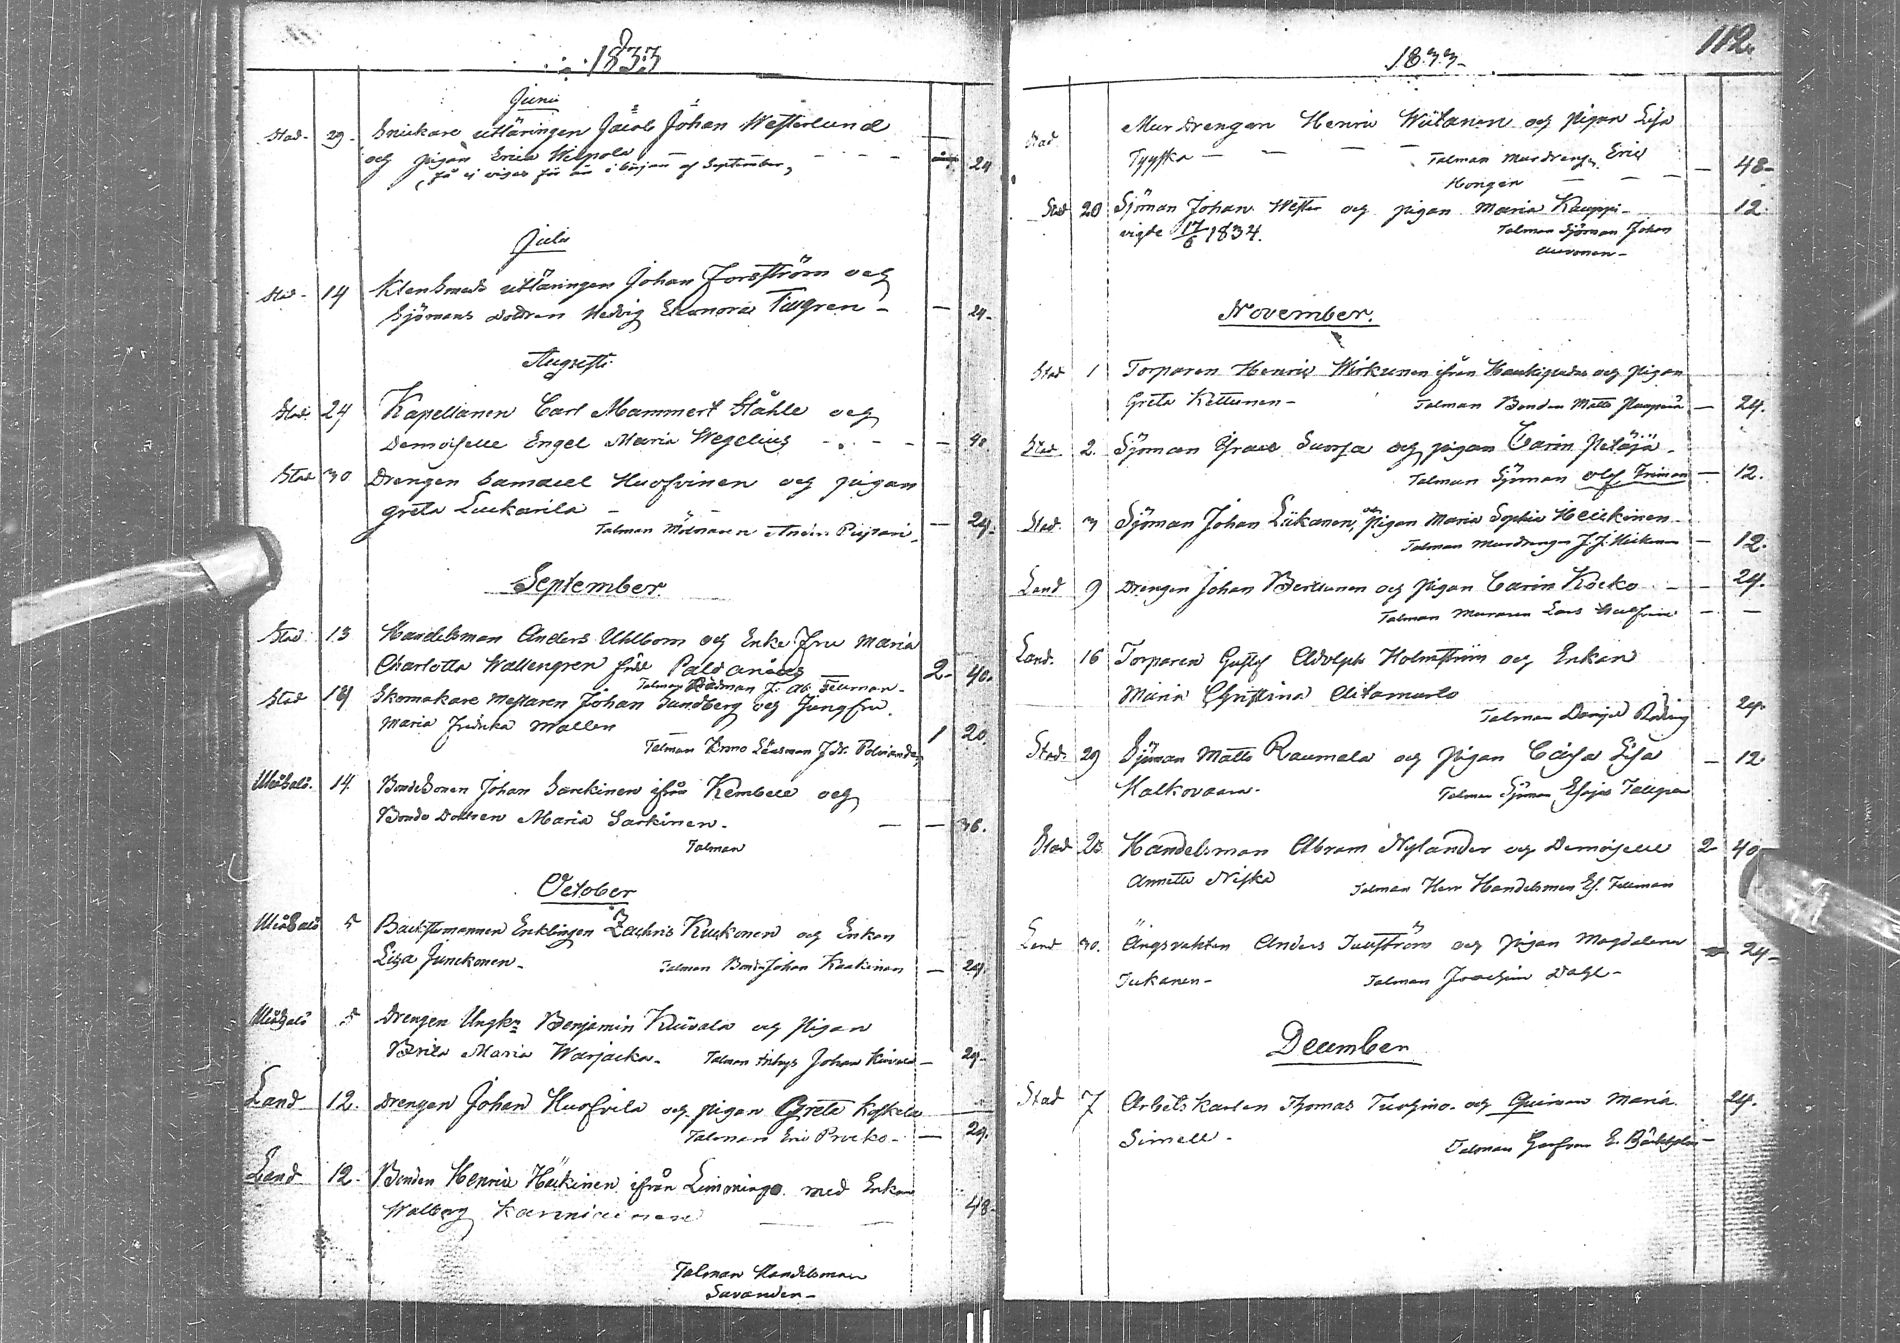 1833
Juni
Stad - 29 - Snickare utläringen Jacob Johan Westerlund
och pigan Erica Weipola - - - - 24
(få ej vigas för än i början af September,
Julii
Stad - 14 Klensmeds utläringen Johan Forsström och
Sjömans dottren Hedvig Eleonora Tillgren - - 24 -
Augusti
Stad 24 Kapellanen Carl Mammert Ståhle och
Demoiselle Engel Maria Wegelius - - - 48
Stad 30 Drengen Samuel Huofvinen och pigan
Greta Luckarila - - - 24 -
Talman
September
Stad 13 Handelsman Anders Uhlbom och Enke Fru Maria
Charlotta Wallengren född Paldanius 2 - 40.
Talman Rådman J. Ab. Fellman -
Stad 14 Skomakare mästaren Johan Sundberg och Jungfru
Maria Fredrika Wallen 1 20
Talman Krono Länsman
Uleåsalo. 14 Bondesonen Johan Sarkinen ifrån Kembele och
Bonde Dottren Maria Sarkinen - - - 36.
Talman
October
Uleåsalo 5 Enklingen Zachris Kuckonen och Enkan
Lisa Junckonen - Talman Bond. Johan Kaakinen - 24
Uleåsalo 5 Drengen Ungk. Benjamin Kuivala och Pigan
Brita Maria Warjacka - Talman Johan Kuivala - 24 -
Land 12. Drengen Johan Huofvila och pigan Greta Koskela
Talman Eric Procko - - 24.
Land 12. Bonden Henric Häikinen ifrån Limmingo med Enkan
Walborg Karnniainen 48 -
Talman Handelsman
Savander -
112.
1833 -
Stad Murdrengen Henric Wiitanen och Pigan Lisa
Tyyska - - - Talman Murdreng Eric
Hongen - - - 48 -
Stad 20 Sjöman Johan Wester och pigan Maria Kauppi - 12
vigde 17/6 1834. Talman Sjöman Johan
November.
Stad 1 Torparen Henric Wirkunen ifrån Haukipudas och Pigan
Greta Kettunen - Talman Bonden Matts - 24.
Stad 2. Sjöman Isaac Suorsa och pigan Carin Petäjä -
Talman Sjöman Olof - 12.
Stad. 3 Sjöman Johan Liikanen, och Pigan Maria Sophia Heickinen -
Talman Murdrengen J. J. - 12.
Land 9 Drengen Johan Bertunen och Pigan Carin Kocko - - 24.
Talman Muraren Lars - -
Land. 16 Torparen Gustaf Adolph Holmström och Enkan
Maria Christina Aitamurto 24.
Talman Daniel
Stad - 29 Sjöman Matts Raumala och Pigan Cajsa Lisa - 12
Malkovaara - Talman Sjöman Esajas Tallgren
Stad 25 Handelsman Abram Nylander och Demoiselle 2 40
Annette Niska Talman Herr Handelsman Es. Fellman
Land 30. Ängsvakten Anders Tullström och Pigan Magdalena - 24 -
Tukanen - Talman Joachim Dahl -
December
Stad 7 Arbetskarlen Thomas Tuohino och Quinnan Maria 24.
Simell - Talman